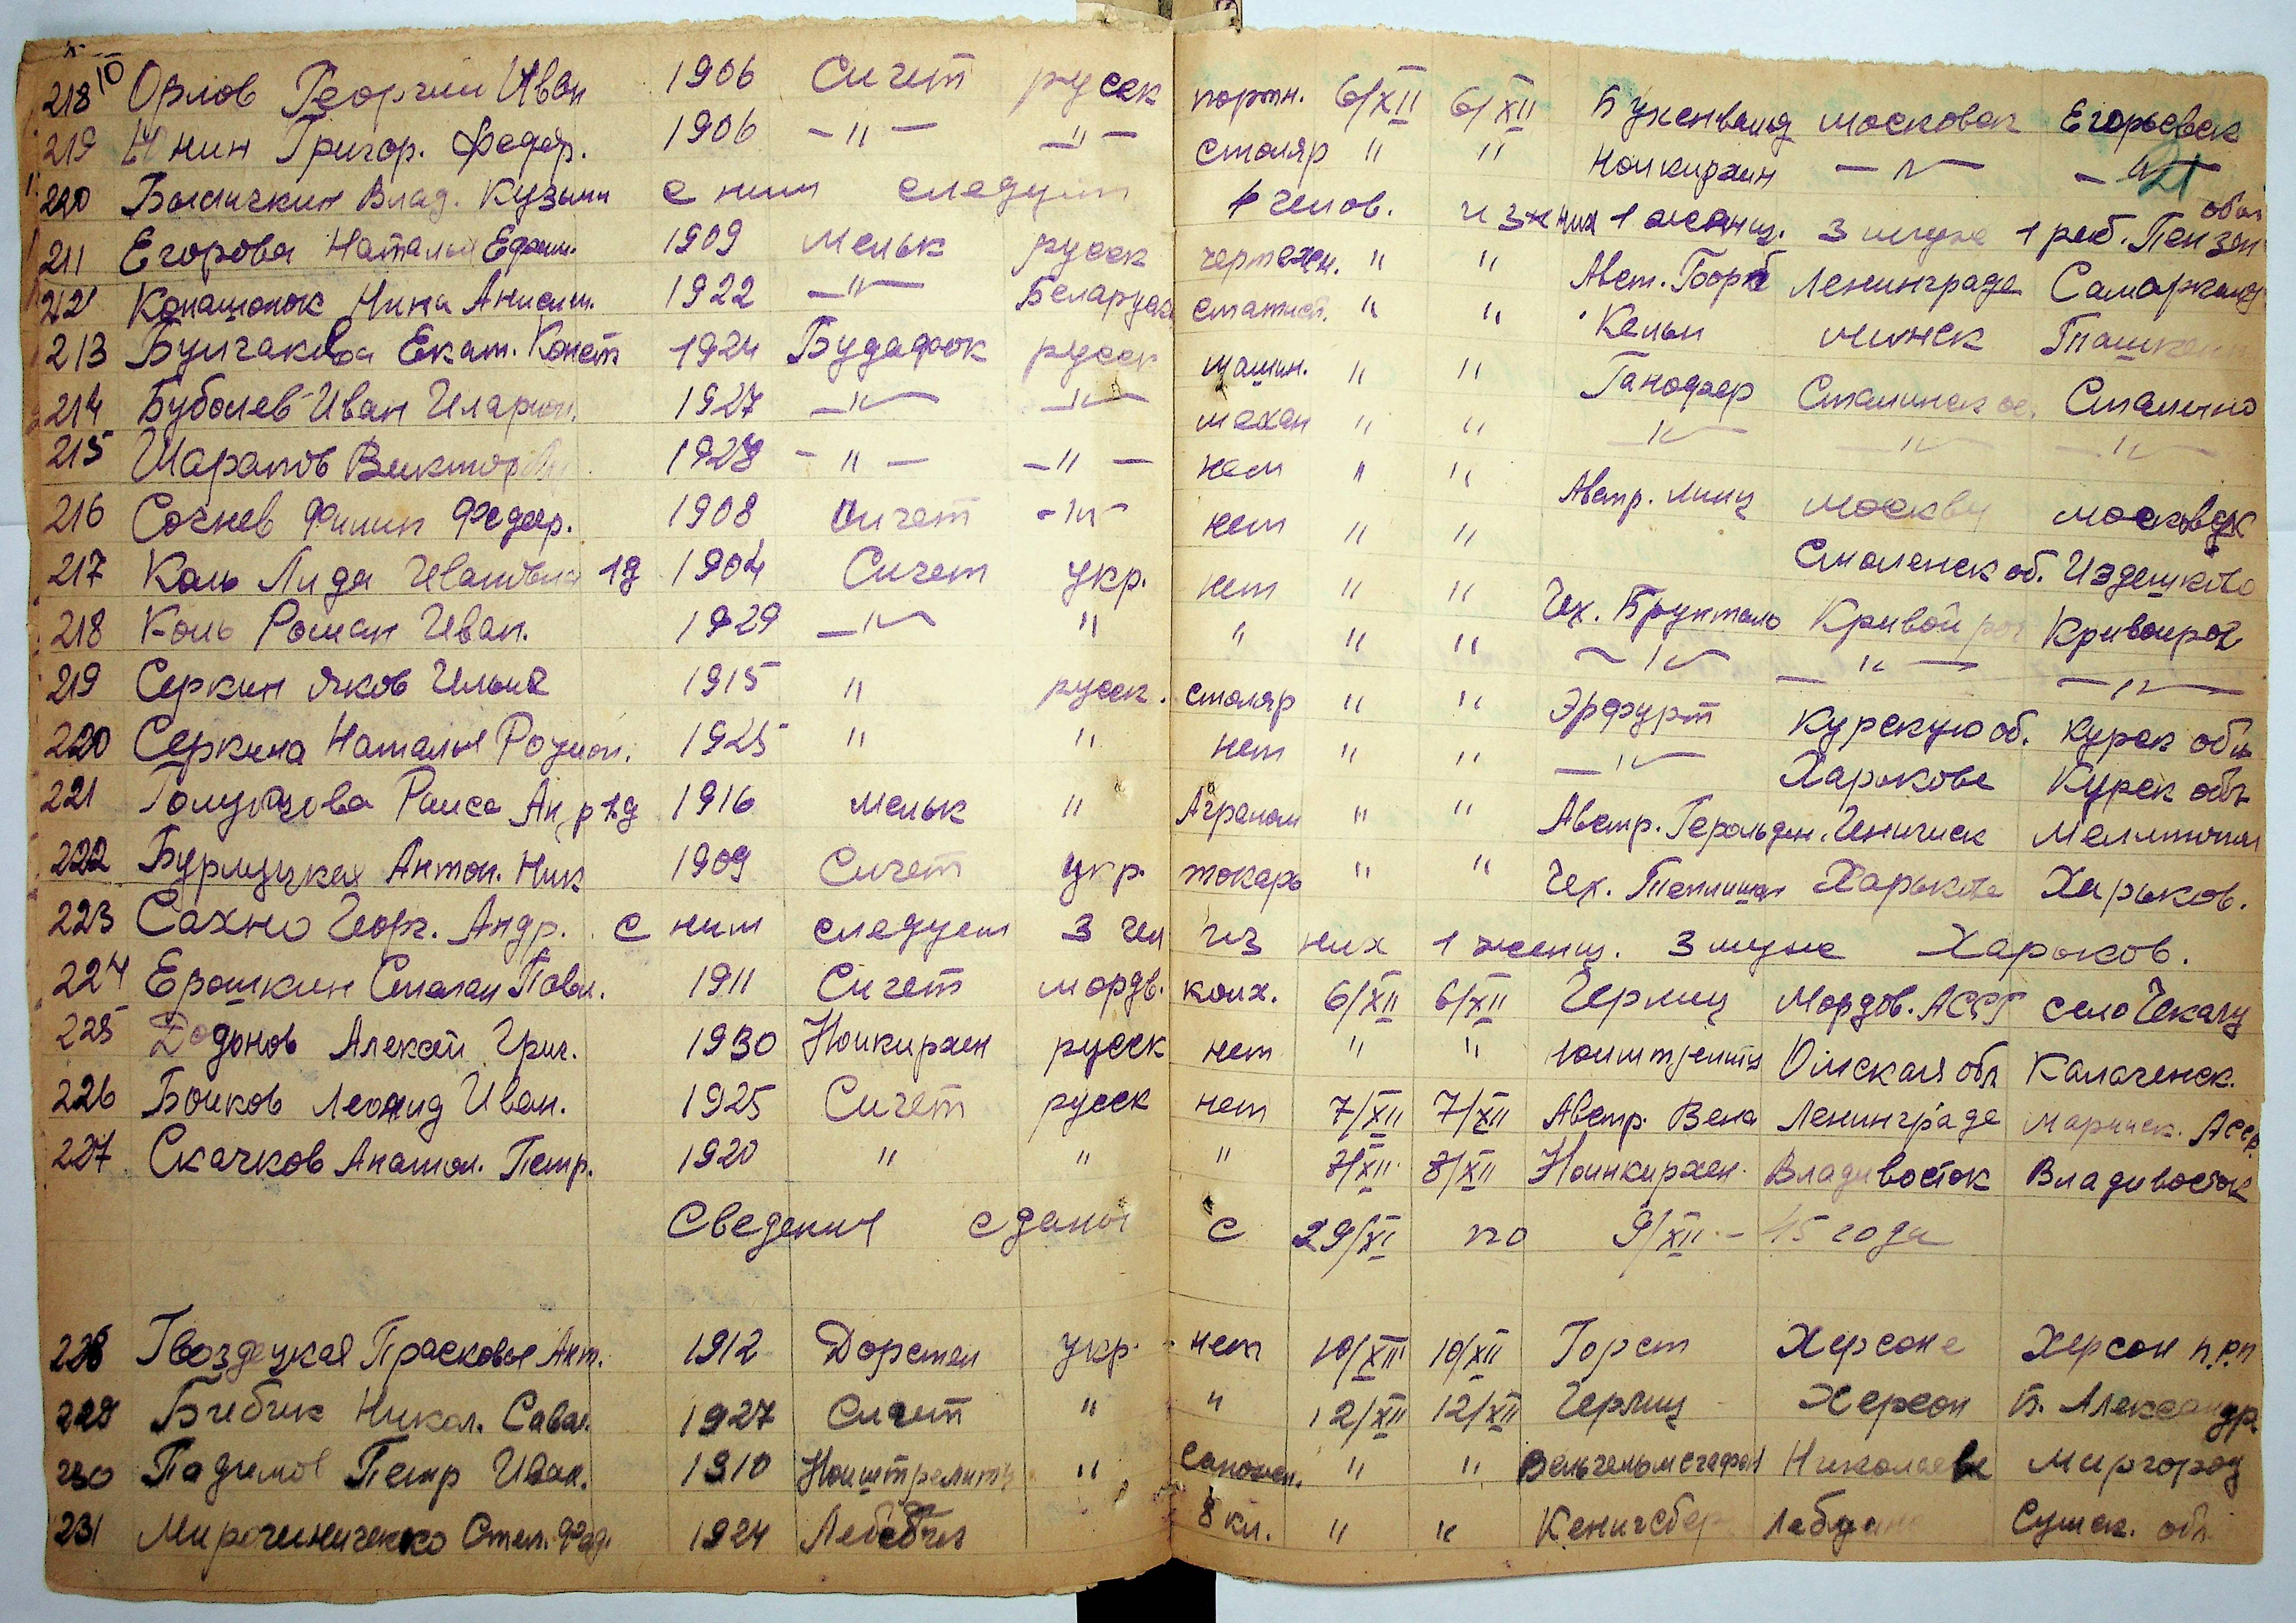 218 Орлов Георгий Иван 1906 Сигет русск портн. 6/XII 6/XII Бухенвальд московск Егорьевск
219 Юнин Григор. Федор. 1906 -"- -"- столяр " " Нойкирхин -"- -"-
220 Влад. Кузьми с ним следует 4 челов. из них 1 женщ. 3 мужч 1 реб. Пензен обл
211 Егорова Наталья Ефим. 1909 Мельк русск чертежн. " " Авст. Ленинграде Самарканд
212 Нина Анисим. 1922 -"- Беларуск статист. " " Кельн Минск Ташкент
213 Булгакова Екат. Конст 1924 Будафок русск машин. " " Ганофер Сталинск об. Сталино
214 Буболев Иван Иларион. 1927 -"- -"- механ " " -"- -"- -"-
215 Шарапов Виктор 1928 -"- -"- нет " " Австр. Линц Москву Московск
216 Сочнев Филип Федор. 1908 Сигет -"- нет " " Смоленск об. Издешково
217 Коль Лида Ивановна 1д 1904 Сигет укр. нет " " Чех. Брунталь Кривой рог Кривойрог
218 Коль Роман Иван. 1929 -"- " " " " -"- -"- -"-
219 Серкин Яков Ильич 1915 " русск. столяр " " Эрфурт Курскую об. Курск обл
220 Серкина Наталья 1925 " " нет " " -"- Харькове Курск обл
221 Раиса 1д 1916 мельк " Аграном " " Австр. Геничиск Мелитопол
222 Бурлуцкая Антон. Ник 1909 Сигет укр. токарь " " Чех. Харькове Харьков.
223 Сахно Георг. Андр. с ним следует 3 чел из них 1 женщ. 3 мужч Харьков.
224 Ерошкин Степан Павл. 1911 Сигет мордв. колх. 6/XII 6/XII Герлиц Мордов. АССР село Чекалу
225 Додонов Алексей Григ. 1930 Нойкирхен русск нет " " Омская обл Калаченск.
226 Бойков Леонид Иван. 1925 Сигет русск нет 7/XII 7/XII Австр. Вена Ленинграде Марийск. Асср
227 Скачков Анатол. Петр. 1920 " " " 8/XII 8/XII Нойнкирхен Владивосток Владивосток
Сведения сданы с 29/XI по 9/XII - 45 года
228 Гвоздецкая Прасковья Ант. 1912 Дорстен укр. нет 10/XII 10/XII Горст Херсоне Херсон п.р.п
229 Николай Савел. 1927 Сигет " " 12/XII 12/XII Герлиц Херсон Б. Александр.
230 Петр Иван. 1910 Нойштрелитц " Сапожн. " " Николаеве Миргород
231 Мирошниченко Степ. Фед. 1924 8 кл. " " Кенигсбер Сумск. обл